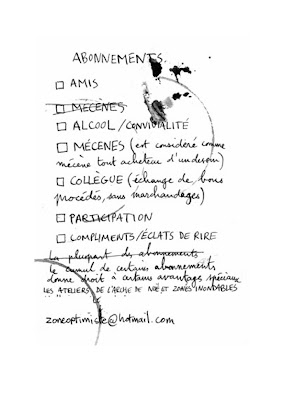 ABONNEMENTS.
AMIS
MECÈNES
ALCOOL/CONVIVIALITÉ
MÉCÈNES (est considéré comme
mécène tout acheteur d'un dessin)
COLLÈGUE (échange de bons
procédés, sans marchandages)
PARTICIPATION
COMPLIMENTS/ÉCLATS DE RIRE
La plupart des abonnements
le cumul de certains abonnements
donne droit à certains avantages spéciaux
LES ATELIERS DE L'ARCHE DE NOÉ ET ZONES INONDABLES
zoneoptimiste@hotmail.com